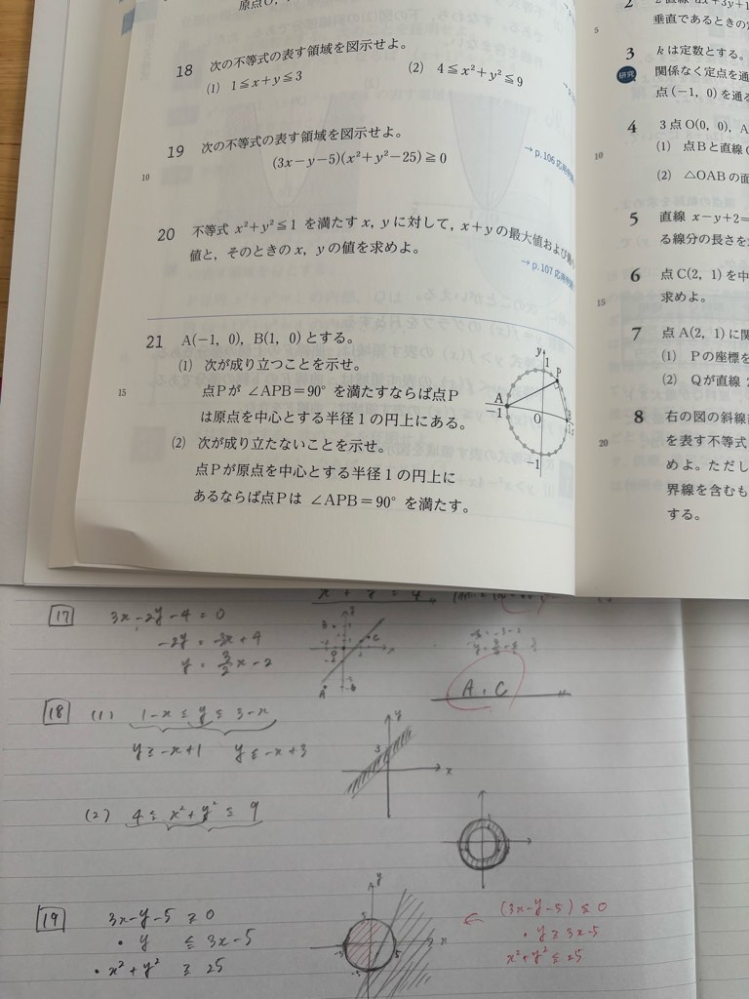 原点O,
18 次の不等式の表す領域を図示せよ。
(1) 1≦x+y≦3 (2) 4≦x²+y²≦9
19 次の不等式の表す領域を図示せよ。
(3x-y-5)(x²+y²-25)≧0
→p.106
10
20 不等式 x²+y²≦1 を満たす x, y に対して, x+y の最大値および
値と, そのときの x, y の値を求めよ。
→p.107
21 A(-1, 0), B(1, 0) とする。
(1) 次が成り立つことを示せ。
15 点Pが ∠APB=90° を満たすならば点P
は原点を中心とする半径1の円上にある。
(2) 次が成り立たないことを示せ。
点Pが原点を中心とする半径1の円上に
あるならば点Pは ∠APB=90° を満たす。
y
1
P
A
-1
O
-1
2
垂直であるときの
5
3 kは定数とする。
研究 関係なく定点を通
点(-1, 0)を通る
4 3点O(0, 0), A
10 (1) 点Bと直線
(2) △OABの面
5 直線 x-y+2=
る線分の長さを
6 点C(2, 1)を中
15 求めよ。
7 点A(2, 1)に関
(1) Pの座標を
(2) Qが直線
8 右の図の斜線
20 を表す不等式
めよ。ただし
界線を含むも
する。
17 3x-2y-4=0
-2y=-3x+4
y=3/2x-2
A, C
18 (1) 1-x≦y≦3-x
y≧-x+1 y≦-x+3
y
3
x
(2) 4≦x²+y²≦9
19 3x-y-5≧0
・y≦3x-5
・x²+y²≧25
y
5
x
(3x-y-5)≦0
・y≧3x-5
x²+y²≦25